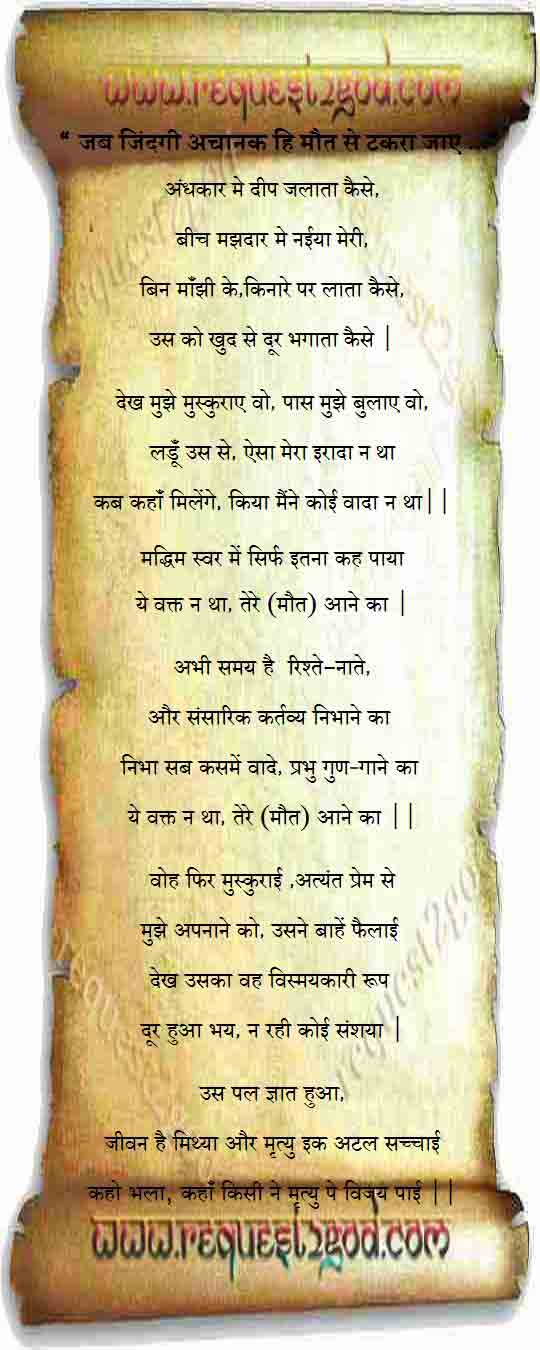 www.request2god.com
“ जब जिंदगी अचानक हि मौत से टकरा जाए ..."
अंधकार मे दीप जलाता कैसे,
बीच मझदार मे नईया मेरी,
बिन माँझी के,किनारे पर लाता कैसे,
उस को खुद से दूर भगाता कैसे |
देख मुझे मुस्कुराए वो, पास मुझे बुलाए वो,
लडूँ उस से, ऐसा मेरा इरादा न था
कब कहाँ मिलेंगे, किया मैंने कोई वादा न था||
मद्धिम स्वर में सिर्फ इतना कह पाया
ये वक्त न था, तेरे (मौत) आने का |
अभी समय है रिश्ते-नाते,
और संसारिक कर्तव्य निभाने का
निभा सब कसमें वादे, प्रभु गुण-गाने का
ये वक्त न था, तेरे (मौत) आने का ||
वोह फिर मुस्कुराई ,अत्यंत प्रेम से
मुझे अपनाने को, उसने बाहें फैलाई
देख उसका वह विस्मयकारी रूप
दूर हुआ भय, न रही कोई संशया |
उस पल ज्ञात हुआ,
जीवन है मिथ्या और मृत्यु इक अटल सच्चाई
कहो भला, कहाँ किसी ने मृत्यु पे विजय पाई ||
www.request2god.com